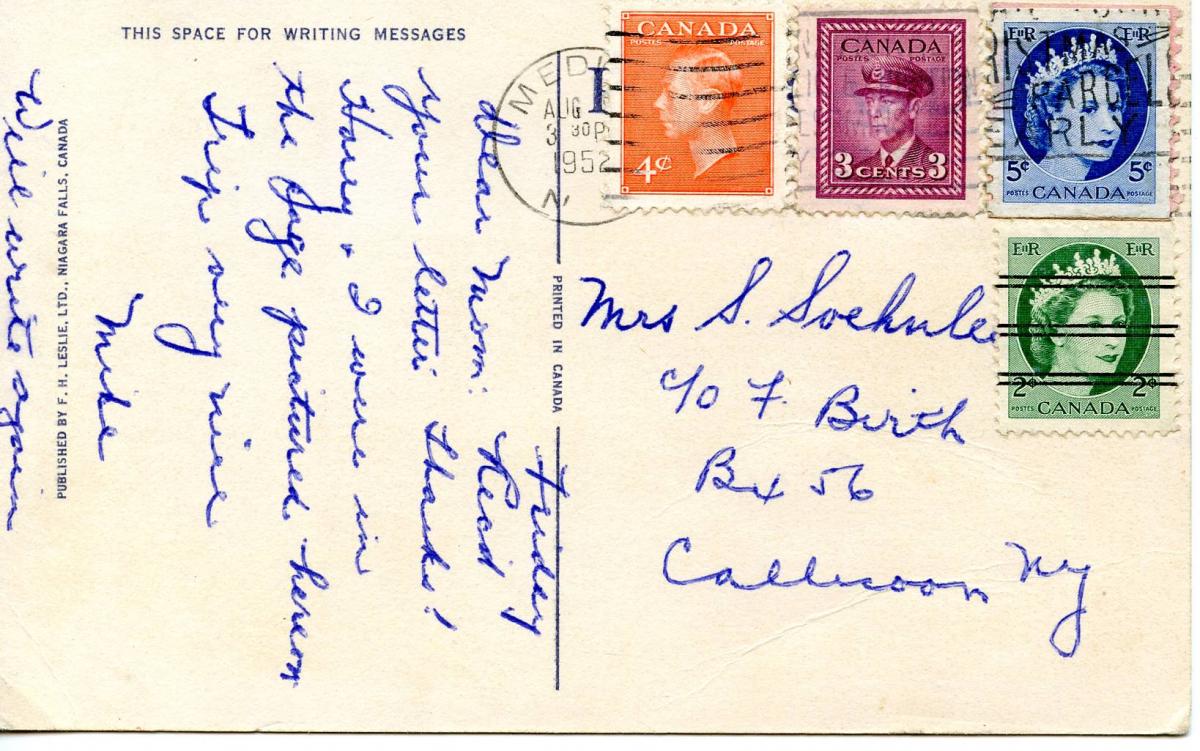 THIS SPACE FOR WRITING MESSAGES
Friday
Dear Mom: Recd
your letter. Thanks!
Harry & I were in
the pictured hereon
Trip very nice
Mike
Will write again
PUBLISHED BY F. H. LESLIE, LTD., NIAGARA FALLS, CANADA
PRINTED IN CANADA
MEDI
AUG
3 30 P
1952
N.
CANADA
POSTES POSTAGE
4¢
CANADA
POSTES POSTAGE
3 CENTS 3
EIIR EIIR
EARLY
5¢ 5¢
POSTES CANADA POSTAGE
EIIR EIIR
2¢ 2¢
POSTES CANADA POSTAGE
Mrs S. Soehnlee
c/o F. Birth
Bx 56
Callicoon Ny